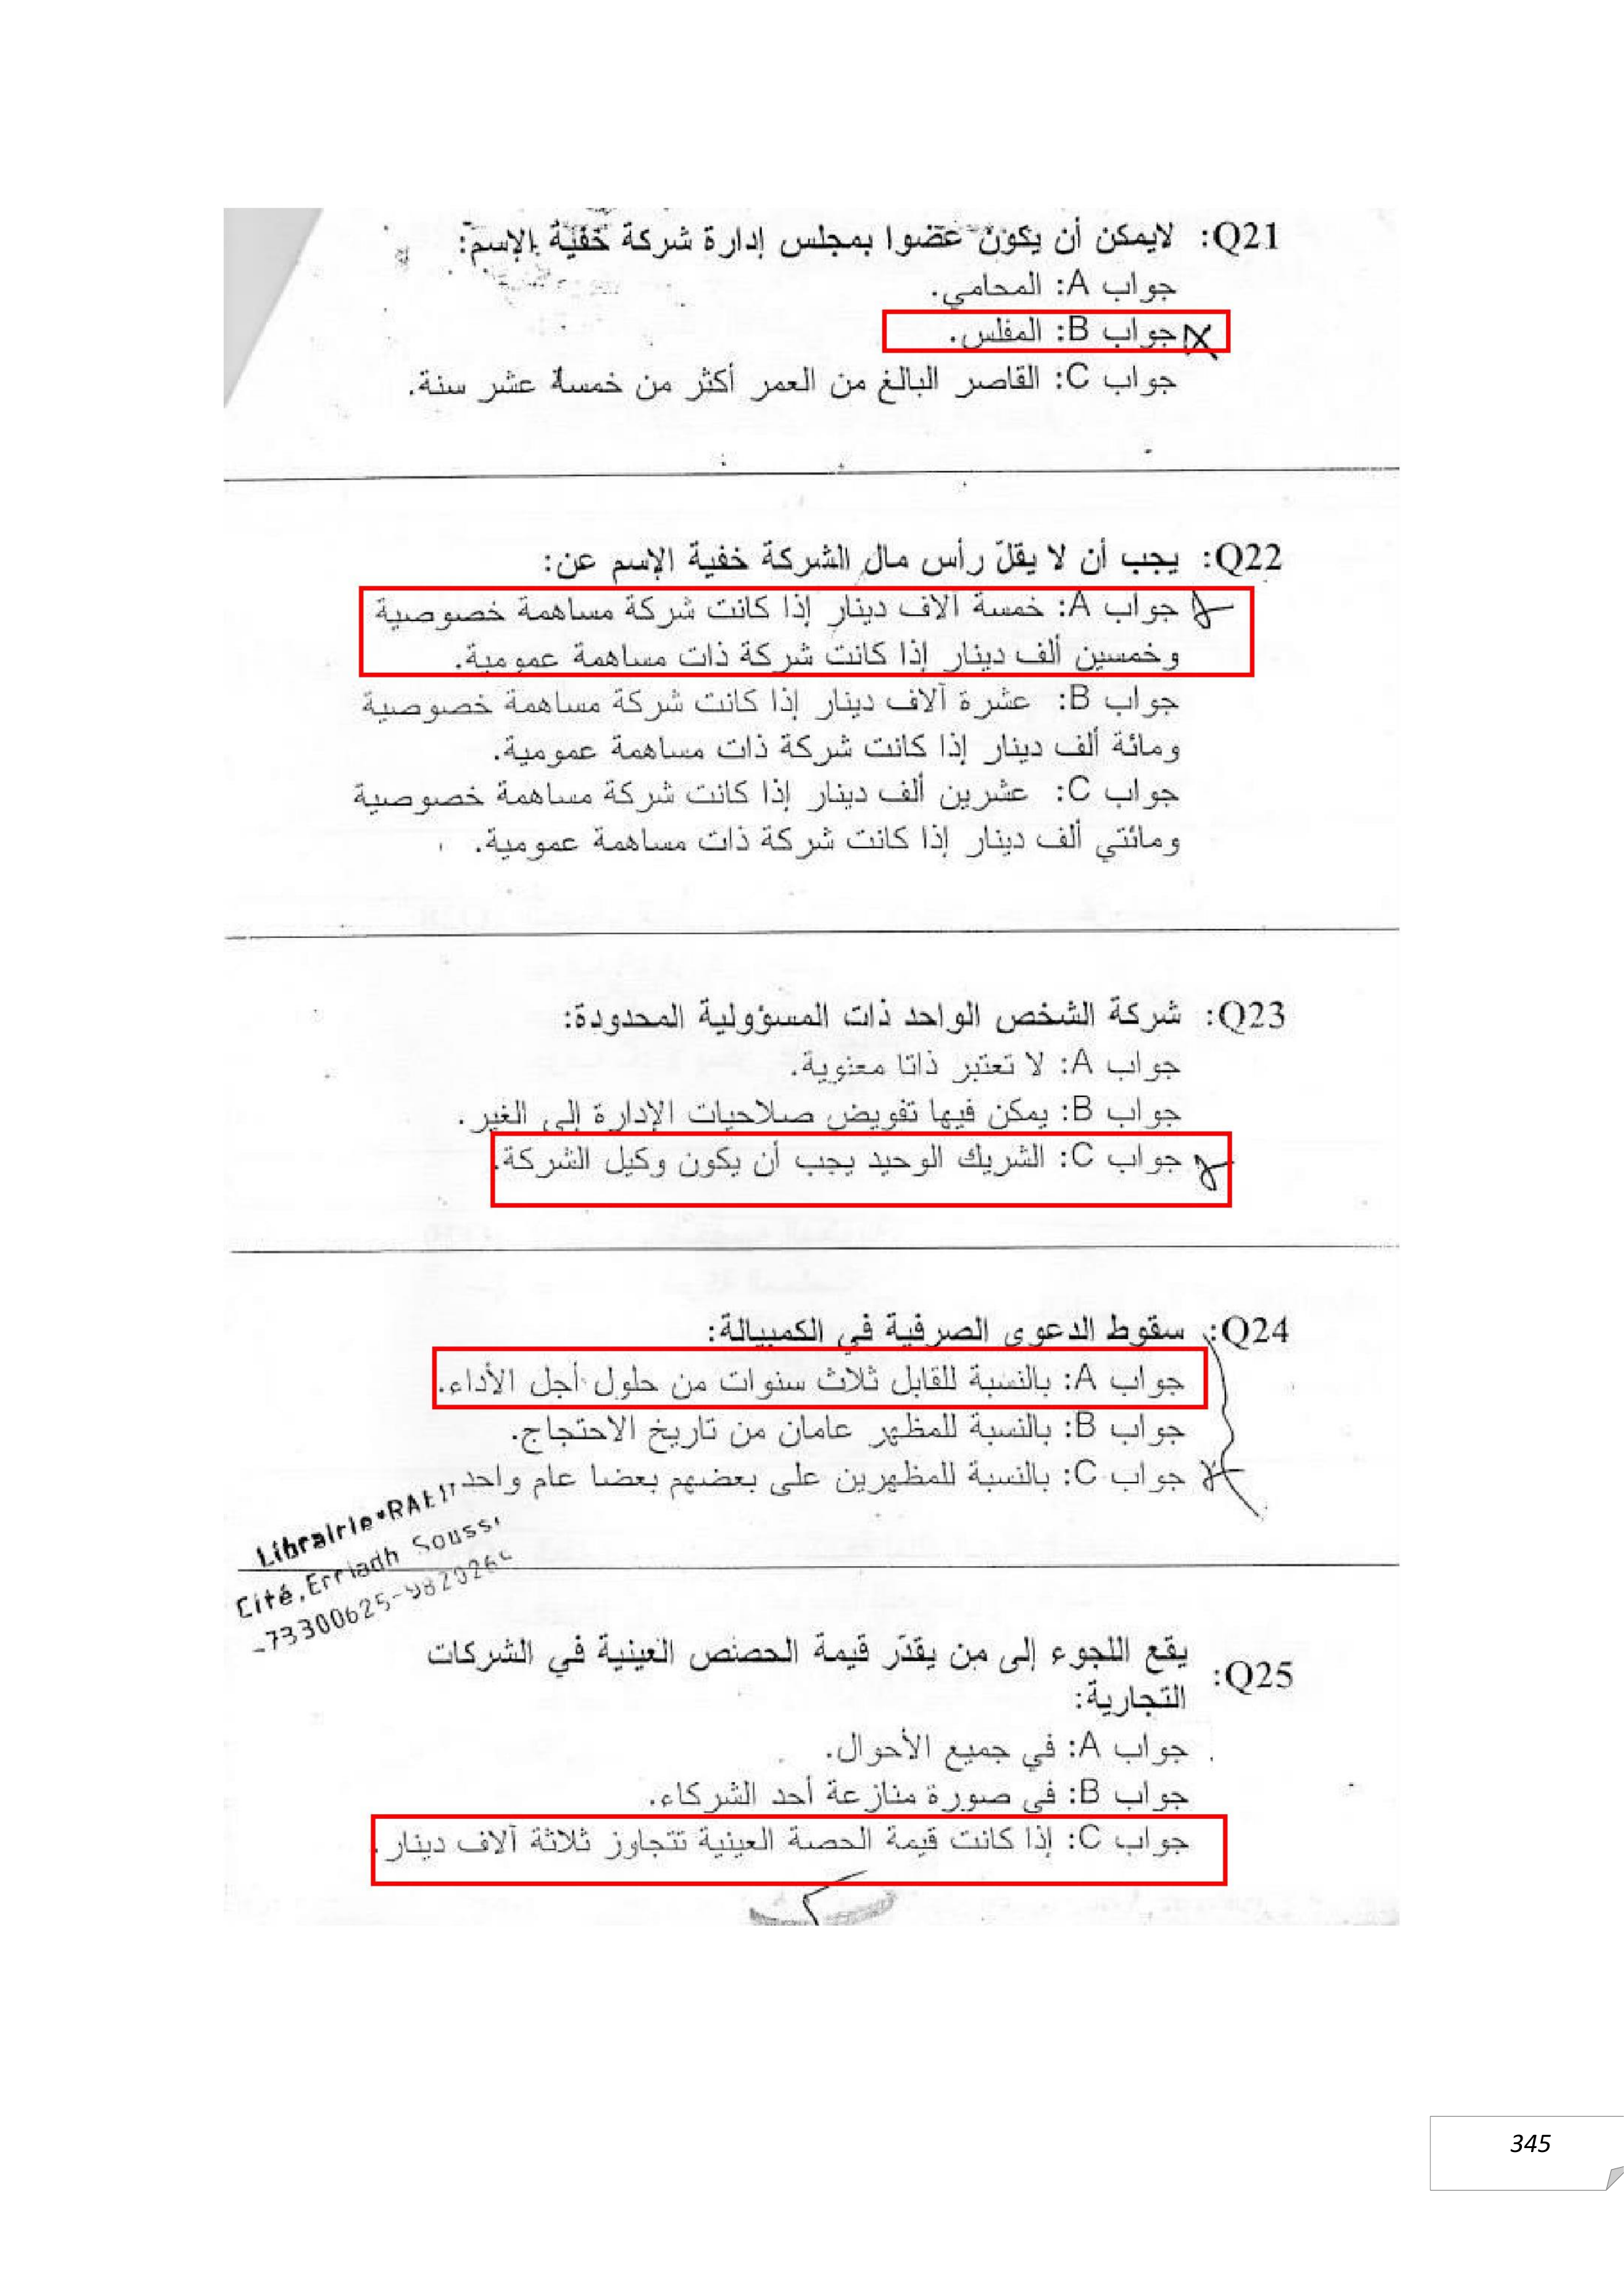 Q21: لايمكن أن يكون عضوا بمجلس إدارة شركة خفية الإسم:
جواب A: المحامي.
جواب B: المفلس.
جواب C: القاصر البالغ من العمر أكثر من خمسة عشر سنة.
Q22: يجب أن لا يقلّ رأس مال الشركة خفية الإسم عن:
جواب A: خمسة آلاف دينار إذا كانت شركة مساهمة خصوصية
وخمسين ألف دينار إذا كانت شركة ذات مساهمة عمومية.
جواب B: عشرة آلاف دينار إذا كانت شركة مساهمة خصوصية
ومائة ألف دينار إذا كانت شركة ذات مساهمة عمومية.
جواب C: عشرين ألف دينار إذا كانت شركة مساهمة خصوصية
ومائتي ألف دينار إذا كانت شركة ذات مساهمة عمومية.
Q23: شركة الشخص الواحد ذات المسؤولية المحدودة:
جواب A: لا تعتبر ذاتا معنوية.
جواب B: يمكن فيها تفويض صلاحيات الإدارة إلى الغير.
جواب C: الشريك الوحيد يجب أن يكون وكيل الشركة.
Q24: سقوط الدعوى الصرفية في الكمبيالة:
جواب A: بالنسبة للقابل ثلاث سنوات من حلول أجل الأداء.
جواب B: بالنسبة للمظهر عامان من تاريخ الاحتجاج.
جواب C: بالنسبة للمظهرين على بعضهم بعضا عام واحد
Librairie
Cité, Erriadh
Q25: يقع اللجوء إلى من يقدّر قيمة الحصص العينية في الشركات
التجارية:
جواب A: في جميع الأحوال.
جواب B: في صورة منازعة أحد الشركاء.
جواب C: إذا كانت قيمة الحصة العينية تتجاوز ثلاثة آلاف دينار.
345